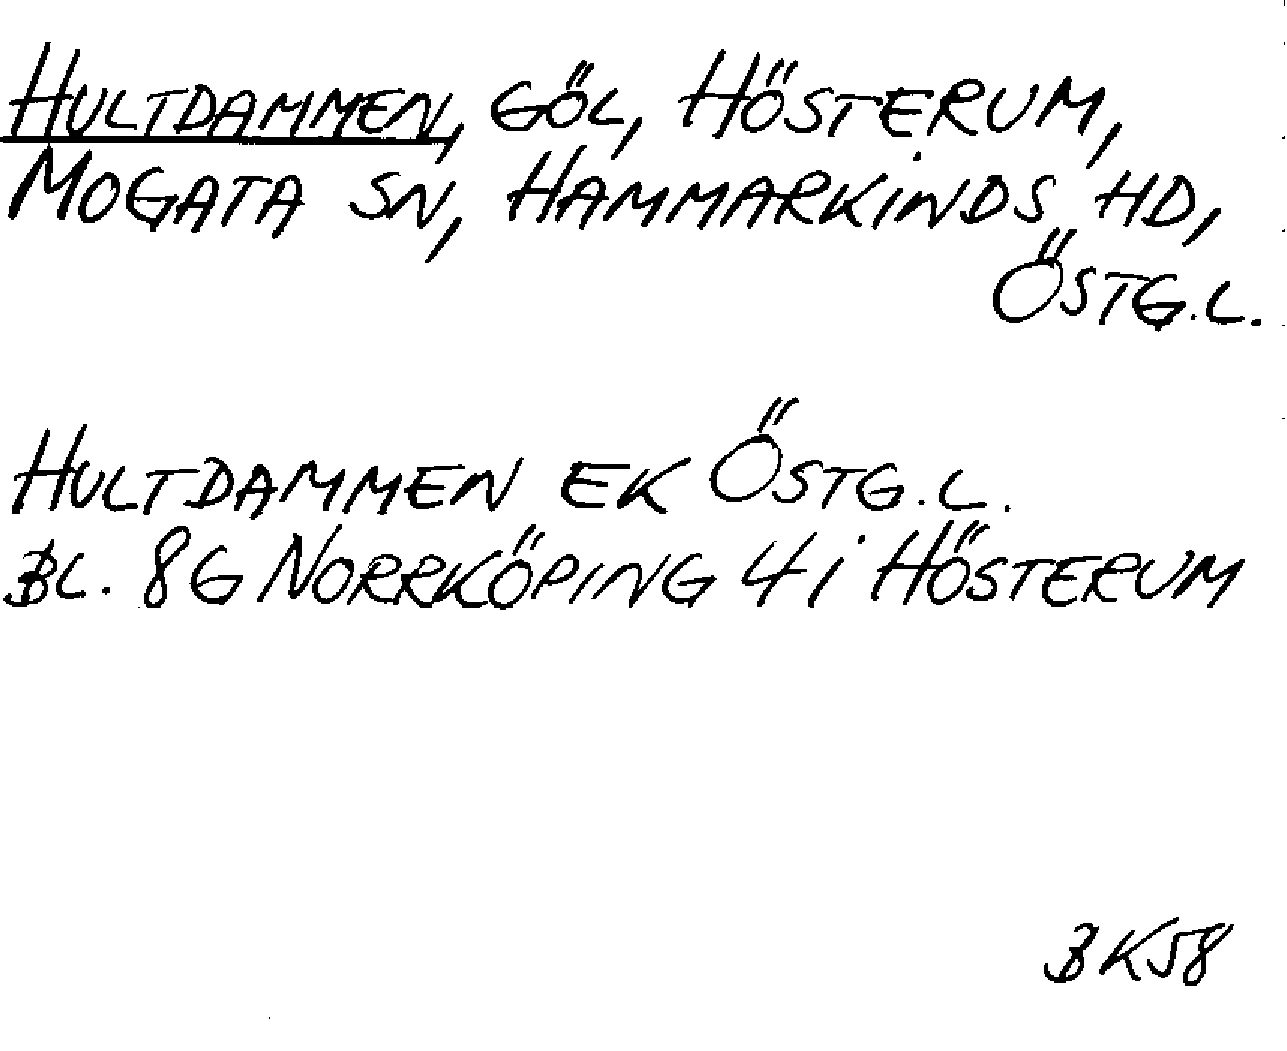 HULTDAMMEN, GÖL, HÖSTERUM,
MOGATA SN, HAMMARKINDS HD,
ÖSTG.L.
HULTDAMMEN EK ÖSTG.L.
BL. 8G NORRKÖPING 4i HÖSTERUM
BK58